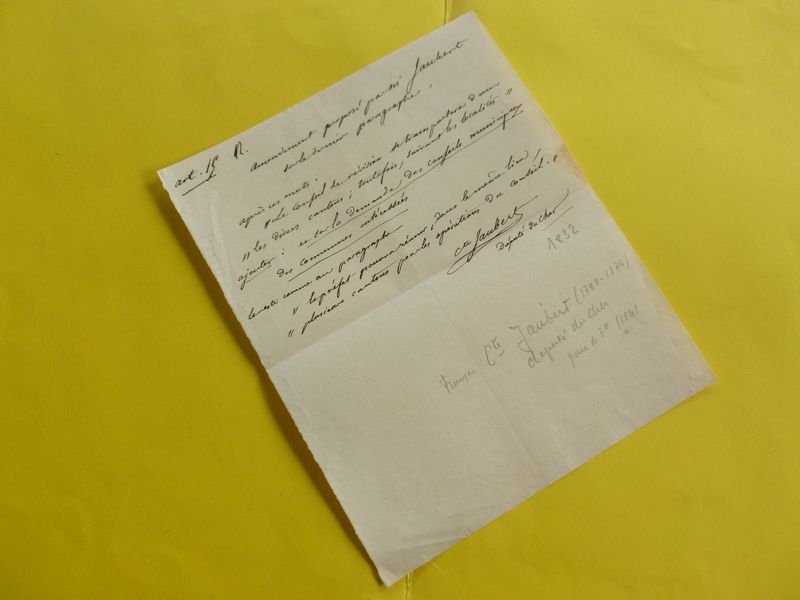 art. 15 R.
Amendement proposé par Mr Jaubert
sur le dernier paragraphe.
après ces mots:
"Le Conseil de révision se transportera dans
" les divers cantons; toutefois, suivant les localités "
ajouter: et sur la demande des conseils municipaux
des communes intéressées
le reste comme au paragraphe
" le préfet pourra réunir, dans le même lieu,
" plusieurs cantons pour les opérations du conseil. "
Cte Jaubert
Député du Cher
1832
Cte Jaubert (1798-1874)
député du Cher
pair de Fr